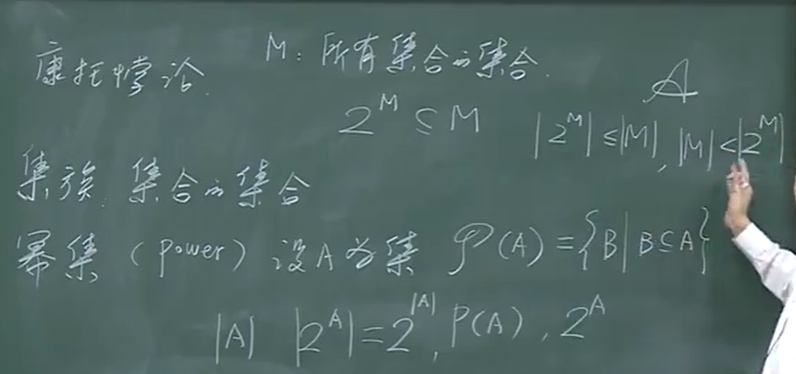 康托悖论. M: 所有集合的集合.
𝒜
2^M ⊆ M |2^M| ≤ |M|, |M| < |2^M|
集族: 集合的集合
幂集 (power) 设A为集 𝒫(A) = {B | B ⊆ A}
|A| |2^A| = 2^|A|, P(A), 2^A